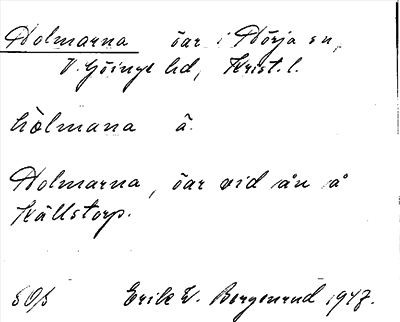 Holmarna öar i Hörja sn,
V. Göinge hd, Krist. l.
hòlmana ä.
Holmarna, öar vid ån å
Källstorp.
Erik W. Bergenrud 1947.